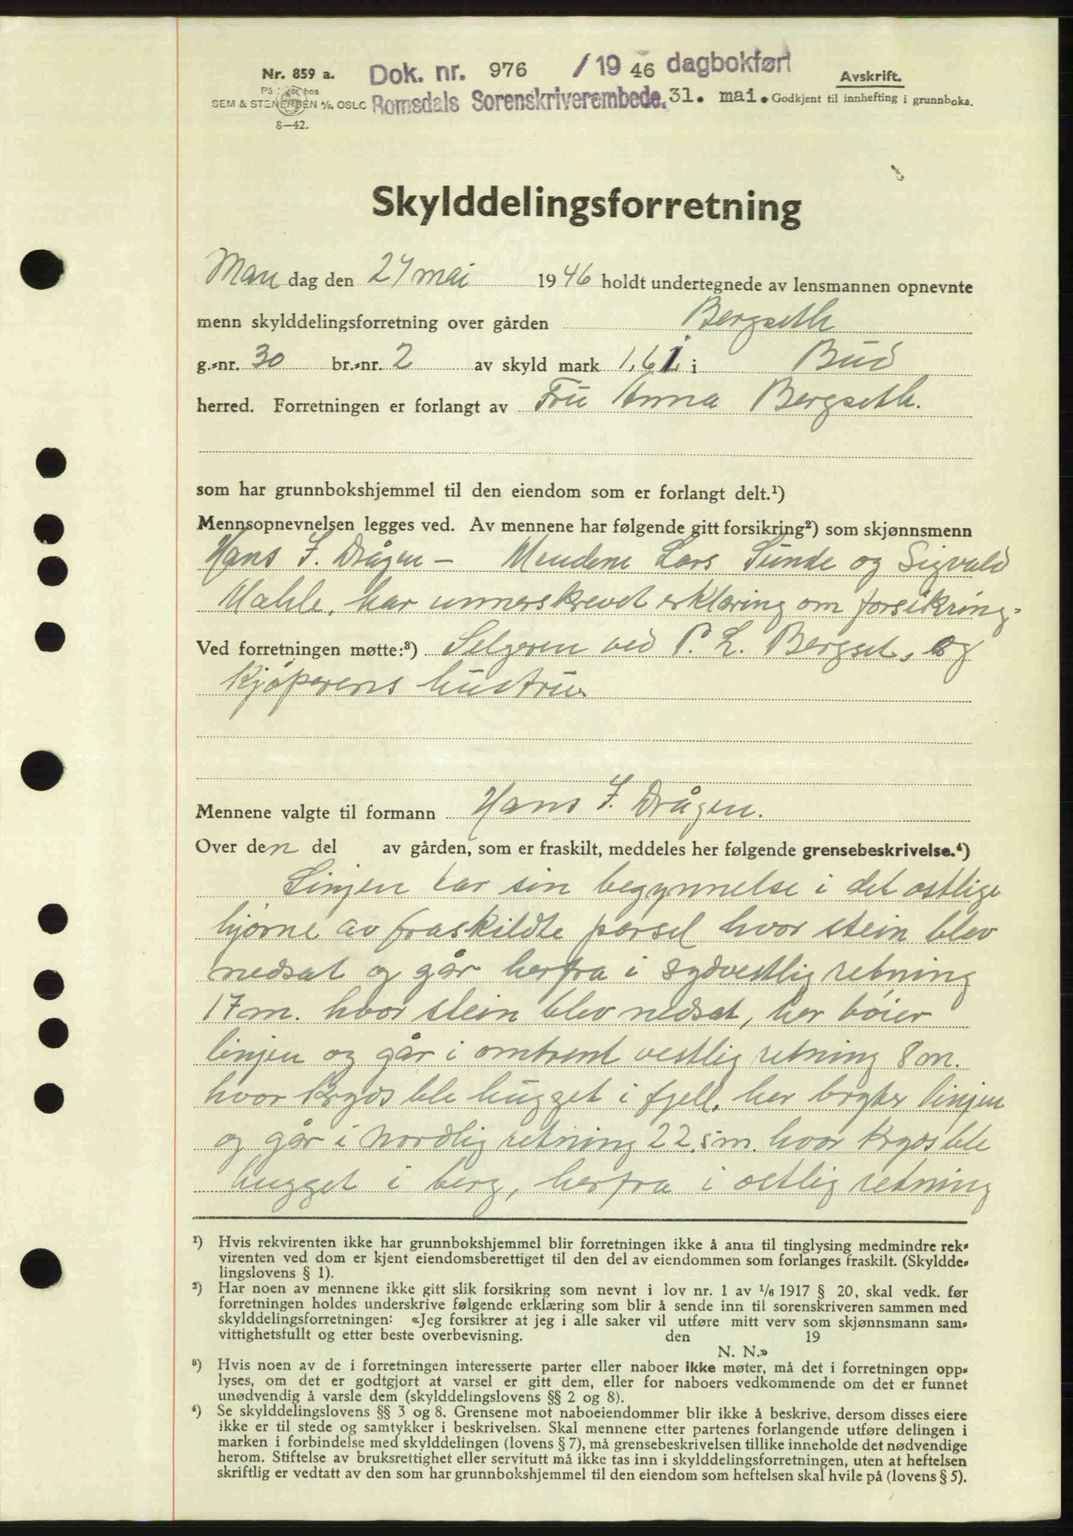 Nr. 859 a. Dok. nr. 976 /1946 dagbokført Avskrift.
SEM & STENERSEN A/S, OSLO Romsdals Sorenskriverembede. 31. mai. Godkjent til innhefting i grunnboka.
8—42.
Skylddelingsforretning
Mandag den 27 mai 1946 holdt undertegnede av lensmannen opnevnte
menn skylddelingsforretning over gården Bergseth
g.-nr. 30 br.-nr. 2 av skyld mark 1,61 i Bud
herred. Forretningen er forlangt av Fru Anna Bergseth.
som har grunnbokshjemmel til den eiendom som er forlangt delt.¹)
Mennsopnevnelsen legges ved. Av mennene har følgende gitt forsikring²) som skjønnsmenn
Hans I. Drågen — Mendene Lars Sunde og Sigvald
Mæhle, har unnerskrevet erklæring om forsikring.
Ved forretningen møtte:³) Selgeren ved P. L. Bergset, og
kjøperens hustru.
Mennene valgte til formann Hans I. Drågen.
Over den del av gården, som er fraskilt, meddeles her følgende grensebeskrivelse.⁴)
Linjen tar sin begynnelse i det østlige
hjørne av fraskildte parsel hvor stein blev
nedsat og går herfra i sydvestlig retning
17 m. hvor stein blev nedsat, her bøier
linjen og går i omtrent vestlig retning 8 m.
hvor kryds ble hugget i fjell, her bryter linjen
og går i nordlig retning 22.5 m. hvor kryds ble
hugget i berg, herfra i østlig retning
¹) Hvis rekvirenten ikke har grunnbokshjemmel blir forretningen ikke å anta til tinglysing medmindre rek-
virenten ved dom er kjent eiendomsberettiget til den del av eiendommen som forlanges fraskilt. (Skyldde-
lingslovens § 1).
²) Har noen av mennene ikke gitt slik forsikring som nevnt i lov nr. 1 av 1/6 1917 § 20, skal vedk. før
forretningen holdes underskrive følgende erklæring som blir å sende inn til sorenskriveren sammen med
skylddelingsforretningen: «Jeg forsikrer at jeg i alle saker vil utføre mitt verv som skjønnsmann sam-
vittighetsfullt og etter beste overbevisning. den 19
N. N.»
³) Hvis noen av de i forretningen interesserte parter eller naboer ikke møter, må det i forretningen opp-
lyses, om det er godtgjort at varsel er gitt dem, eller for naboers vedkommende om det er funnet
unødvendig å varsle dem (skylddelingslovens §§ 2 og 8).
⁴) Se skylddelingslovens §§ 3 og 8. Grensene mot naboeiendommer blir ikke å beskrive, dersom disses eiere
ikke er til stede og samtykker i beskrivelsen. Skal mennene etter partenes forlangende utføre delingen i
marken i forbindelse med skylddelingen (lovens § 7), må grensebeskrivelsen tillike inneholde det nødvendige
herom. Stiftelse av bruksrettighet eller servitutt må ikke tas inn i skylddelingsforretningen, uten at heftelsen
skriftlig er vedtatt av den som har grunnbokshjemmel til den eiendom som heftelsen skal hvile på (lovens § 5).